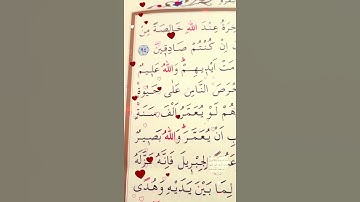 خِرَةُ عِنْدَ اللّٰهِ خَالِصَةً مِنْ
اِنْ كُنْتُمْ صَادِقٖينَ ﴿٩٤﴾
مَتْ اَيْدٖيهِمْ وَاللّٰهُ عَلٖيمٌ
حْرَصَ النَّاسِ عَلٰى حَيٰوةٍ
هُمْ لَوْ يُعَمَّرُ اَلْفَ سَنَةٍ
بِ اَنْ يُعَمَّرَ وَاللّٰهُ بَصٖيرٌ
لِجِبْرٖيلَ فَاِنَّهُ نَزَّلَهُ
لِمَا بَيْنَ يَدَيْهِ وَهُدًى